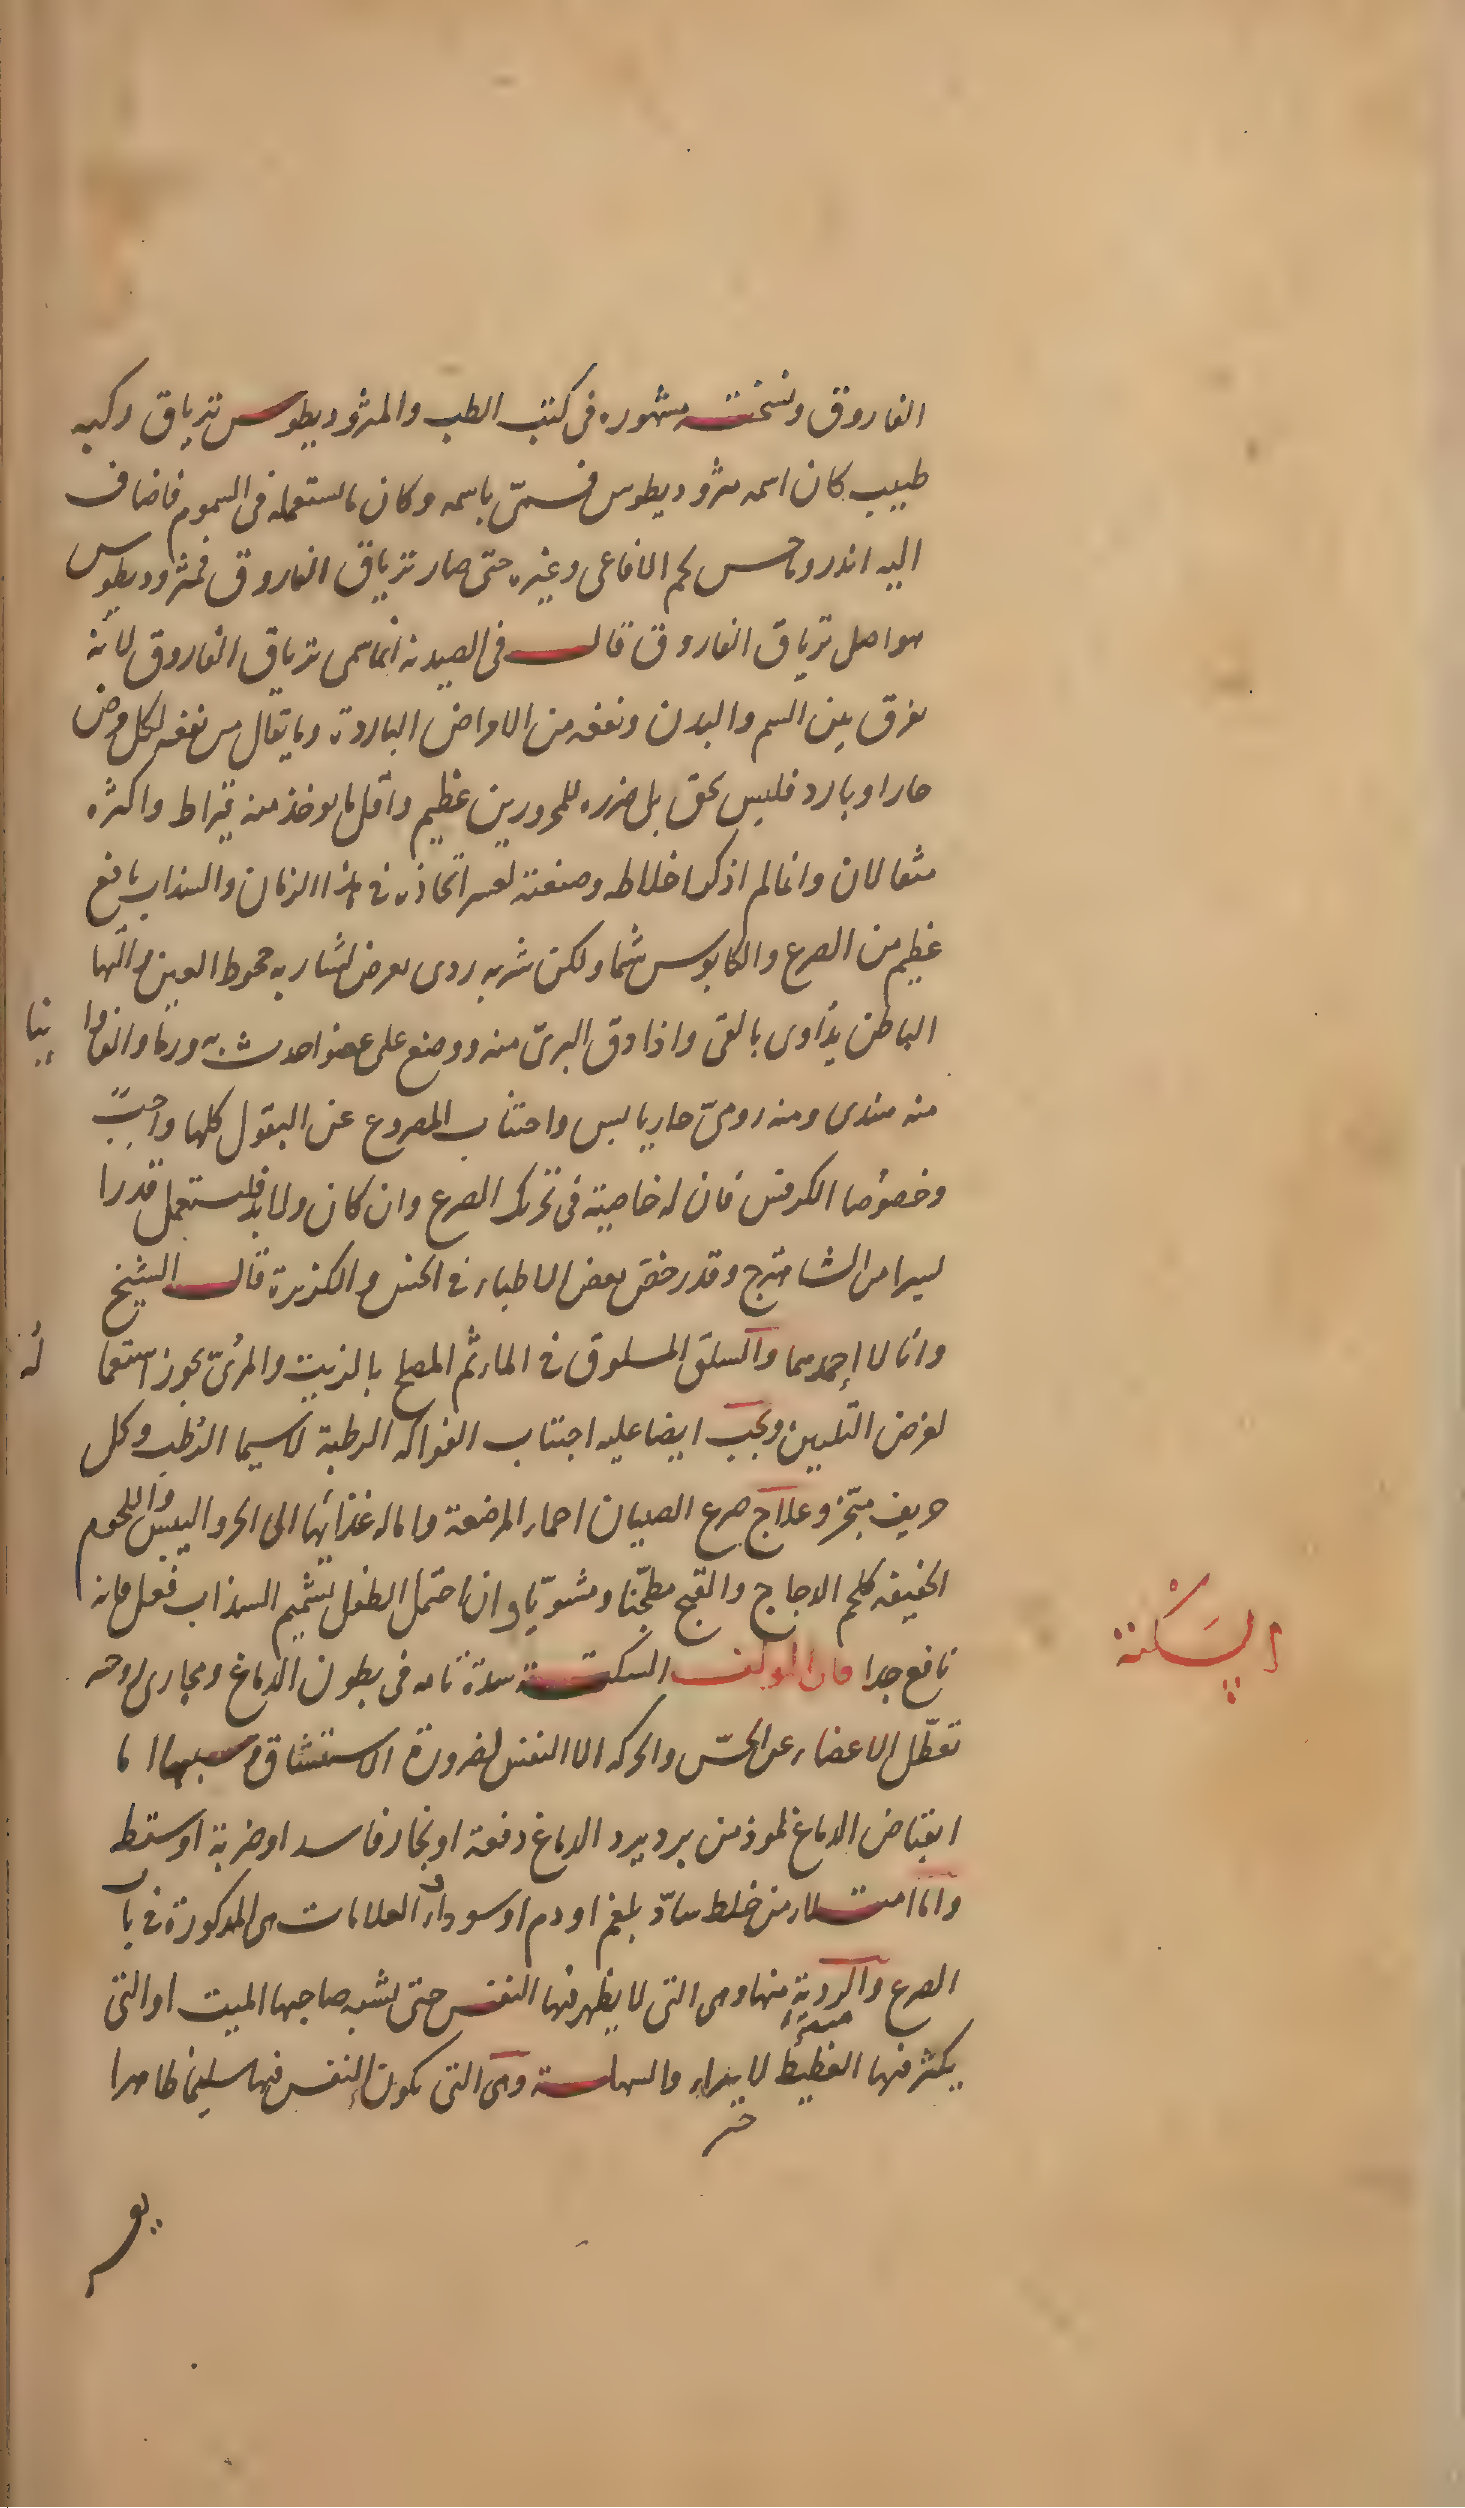 الفاروق ونسخته مشهوره فى كتب الطب والمثروديطوس ترياق ركبه
طبيب كان اسمه مثروديطوس فسمّى باسمه وكان يستعمله فى السموم فاضاف
اليه اندروماخس لحم الافاعى وغيره حتى صار ترياق الفاروق فمثروديطوس
هو اصل ترياق الفاروق قال فى الصيدنه انما سمى ترياق الفاروق لانه
يفرق بين السم والبدن ونفعه من الامراض الباردة وما يقال من نفعه لكل مرض
حار او بارد فليس بحق بل ضرره للمحرورين عظيم واقل ما يوخذ منه قيراط واكثره
مثقالان وانما لم اذكر اخلاطه وصنعته لعسر اتخاذه فى هذا الزمان والسذاب نافع
عظيم من الصرع والكابوس شما ولكن شربه ردى يعرض لشاربه جحوظ العين والتها
الباطن يداوى بالقى واذا دق البرىّ منه ووضع على عضو احدث به ورما والفاوا نيا
منه هندى ومنه رومىّ حار يابس واجتناب المصروع عن البقول كلها واجبٌ
وخصوصا الكرفس فان له خاصية فى تحريك الصرع وان كان ولا بد فليستعمل قدرا
يسيرا من الشاهترج وقد رخص بعض الاطباء فى الخس والكزبرة قال الشيخ
وانا لا احمدهما والسلق المسلوق فى الماء ثم المصلح بالزيت والمرىّ يجوز استعما له
لغرض التليين ويجب ايضا عليه اجتناب الفواكه الرطبة لاسيما الرطب وكل
حريف مبخر وعلاج صرع الصبيان احماء المرضعة وامالة غذائها الى الحر واليبس واللحوم
الخفيفه كلحم الدجاج والقبج مطجّنا ومشويّا وان احتمل الطفل تشميم السذاب فعل فانه
نافع جدا قال المولف السكتة سدة تامه فى بطون الدماغ ومجارى روحه
تعطّل الاعضاء عن الحسّ والحركه الا النفس لضرورة الاستنشاق وسببها اما
انقباض الدماغ لموذ من برد يرد الدماغ دفعة او بخار فاسد او ضربة او سقطة
واما امتلاء من خلط سادّ بلغم او دم او سوداء والعلامات هى المذكورة فى باب
الصرع والردية منها وهى التى لا يظهر فيها النفس حتى يشبه صاحبها الميت او التى
يكثر فيها الغطيط لا يبراء والسهلة وهى التى يكون النفس فيها سليما ظاهرا
السَكتة